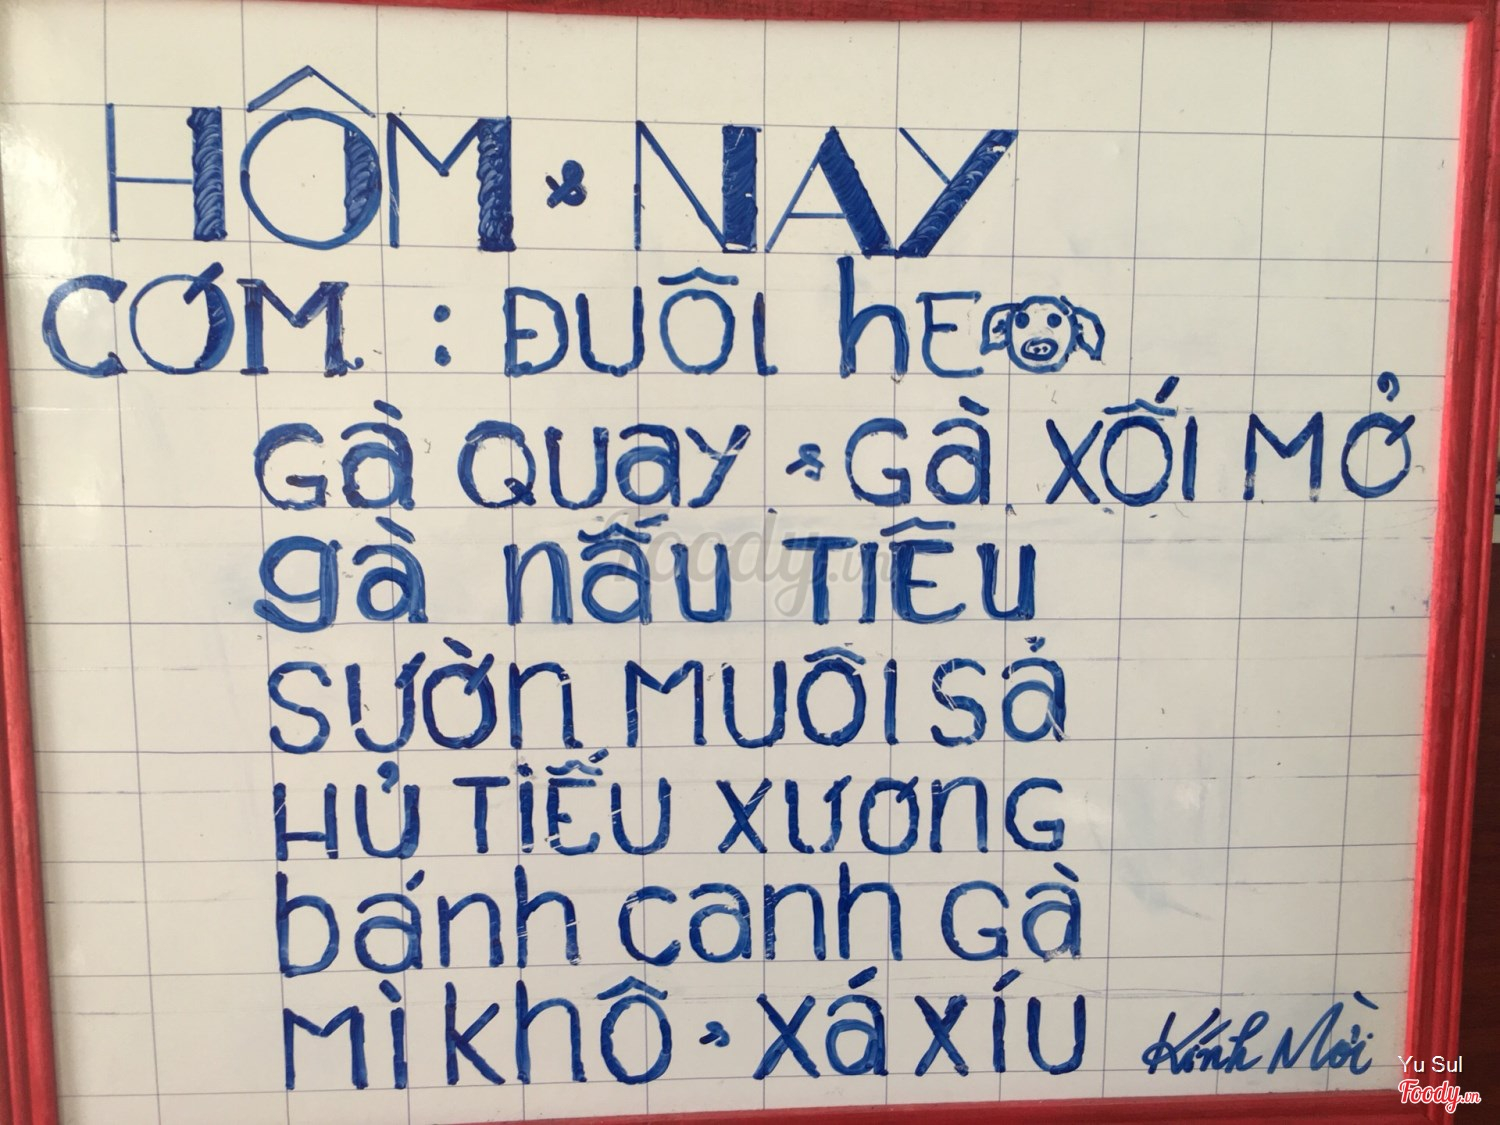 HÔM NAY
CƠM : ĐUÔI hEO
Gà QUay Gà XỐI MỞ
gà nấu TIÊU
SƯỜn MUÔI Sả
HỦ TiẾU XƯƠnG
bánh canh Gà
Mì Khô XáXíU
Kính Mời
foody.vn
Yu Sul
Foody.vn